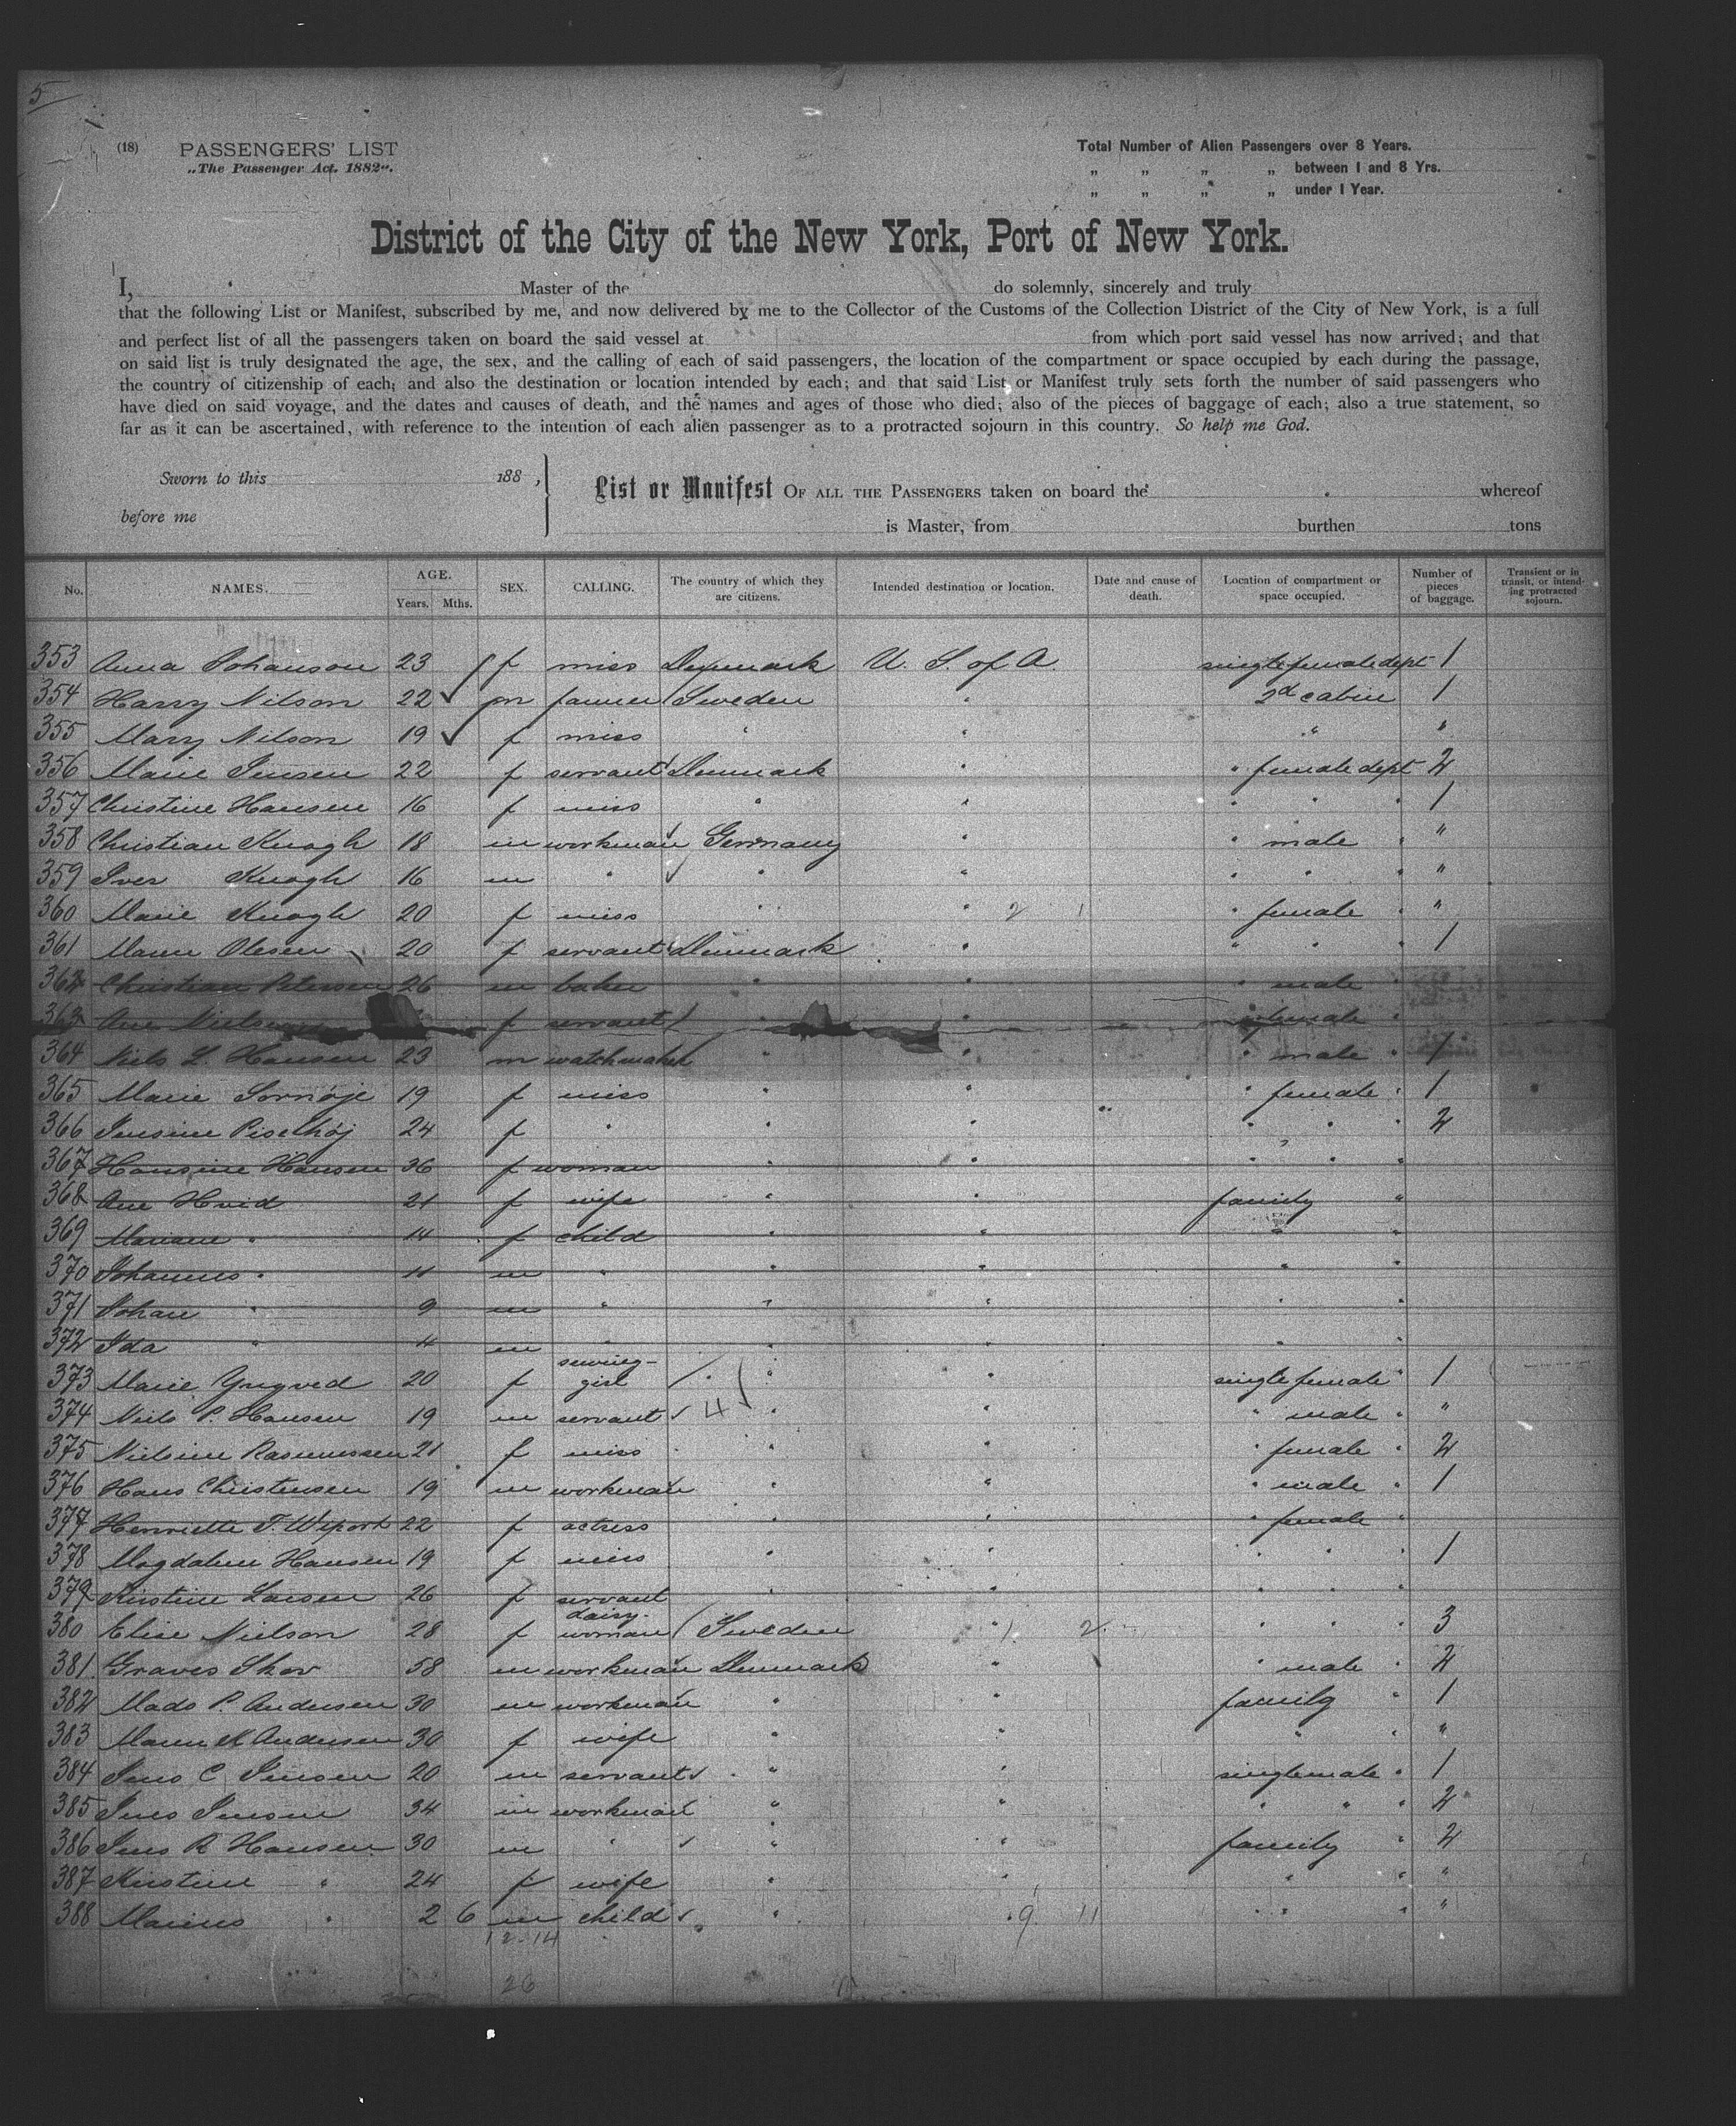 5
(18) PASSENGERS' LIST
„The Passenger Act. 1882".
Total Number of Alien Passengers over 8 Years.
„ „ „ „ between 1 and 8 Yrs.
„ „ „ „ under 1 Year.
District of the City of the New York, Port of New York.
I, Master of the do solemnly, sincerely and truly
that the following List or Manifest, subscribed by me, and now delivered by me to the Collector of the Customs of the Collection District of the City of New York, is a full
and perfect list of all the passengers taken on board the said vessel at from which port said vessel has now arrived; and that
on said list is truly designated the age, the sex, and the calling of each of said passengers, the location of the compartment or space occupied by each during the passage,
the country of citizenship of each; and also the destination or location intended by each; and that said List or Manifest truly sets forth the number of said passengers who
have died on said voyage, and the dates and causes of death, and the names and ages of those who died; also of the pieces of baggage of each; also a true statement, so
far as it can be ascertained, with reference to the intention of each alien passenger as to a protracted sojourn in this country. So help me God.
Sworn to this 188 ,
before me
List or Manifest OF ALL THE PASSENGERS taken on board the whereof
is Master, from burthen tons
No. NAMES. AGE. Years. Mths. SEX. CALLING. The country of which they are citizens. Intended destination or location. Date and cause of death. Location of compartment or space occupied. Number of pieces of baggage. Transient or in transit, or intending protracted sojourn.
353 Anna Johanson 23 f miss Denmark U. S. of A. single female dept 1
354 Harry Nilson 22 m farmer Sweden " 2d cabin 1
355 Mary Nilson 19 f miss " " " "
356 Marie Jensen 22 f servant Denmark " " female dept 2
357 Christine Hansen 16 f miss " " " " " 1
358 Christian Knogh 18 m workman Germany " " male " "
359 Iver Knogh 16 m " " " " " " "
360 Marie Knogh 20 f miss " " 2 1 " female " "
361 Maren Olesen 20 f servant Denmark " " " " 1
362 Christian Peterson 26 m baker " " " male "
363 Ane f servant " " female "
364 Niels L. Hansen 23 m watchmaker " " " male " 1
365 Marie 19 f miss " " " female " 1
366 Jensine 24 f " " " " " " 2
367 Hansine Hansen 36 f woman " " " " "
368 Ane Hvid 21 f wife " " family "
369 Mariane " 14 f child " " " "
370 Johannes " 11 m " " " " "
371 Johan " 9 m " " " " "
372 Ida " 4 m " " " "
373 Marie Yngved 20 f sewing-girl " " single female " 1
374 Niels P. Hansen 19 m servant 4 " " " male " "
375 Nielsine Rasmussen 21 f miss " " " female " 2
376 Hans Christensen 19 m workman " " " male " 1
377 Henriette T. 22 f actress " " " female "
378 Magdalene Hansen 19 f miss " " " " " 1
379 Kirstine Larsen 26 f servant " " " " "
380 Elise Nielson 28 f dairy-woman Sweden " 1 2 " " " 3
381 Graves Skov 58 m workman Denmark " " male " 2
382 Mads P. Andersen 30 m workman " " family " 1
383 Maren K Andersen 30 f wife " " " " "
384 Jens C Jensen 20 m servant " " single male " 1
385 Jens Jensen 34 m workman " " " " " 2
386 Jens R Hansen 30 m " " " family " 2
387 Kirstine " 24 f wife " " " " "
388 Marius " 2 6 m child " " 9 11 " " "
12-14
26